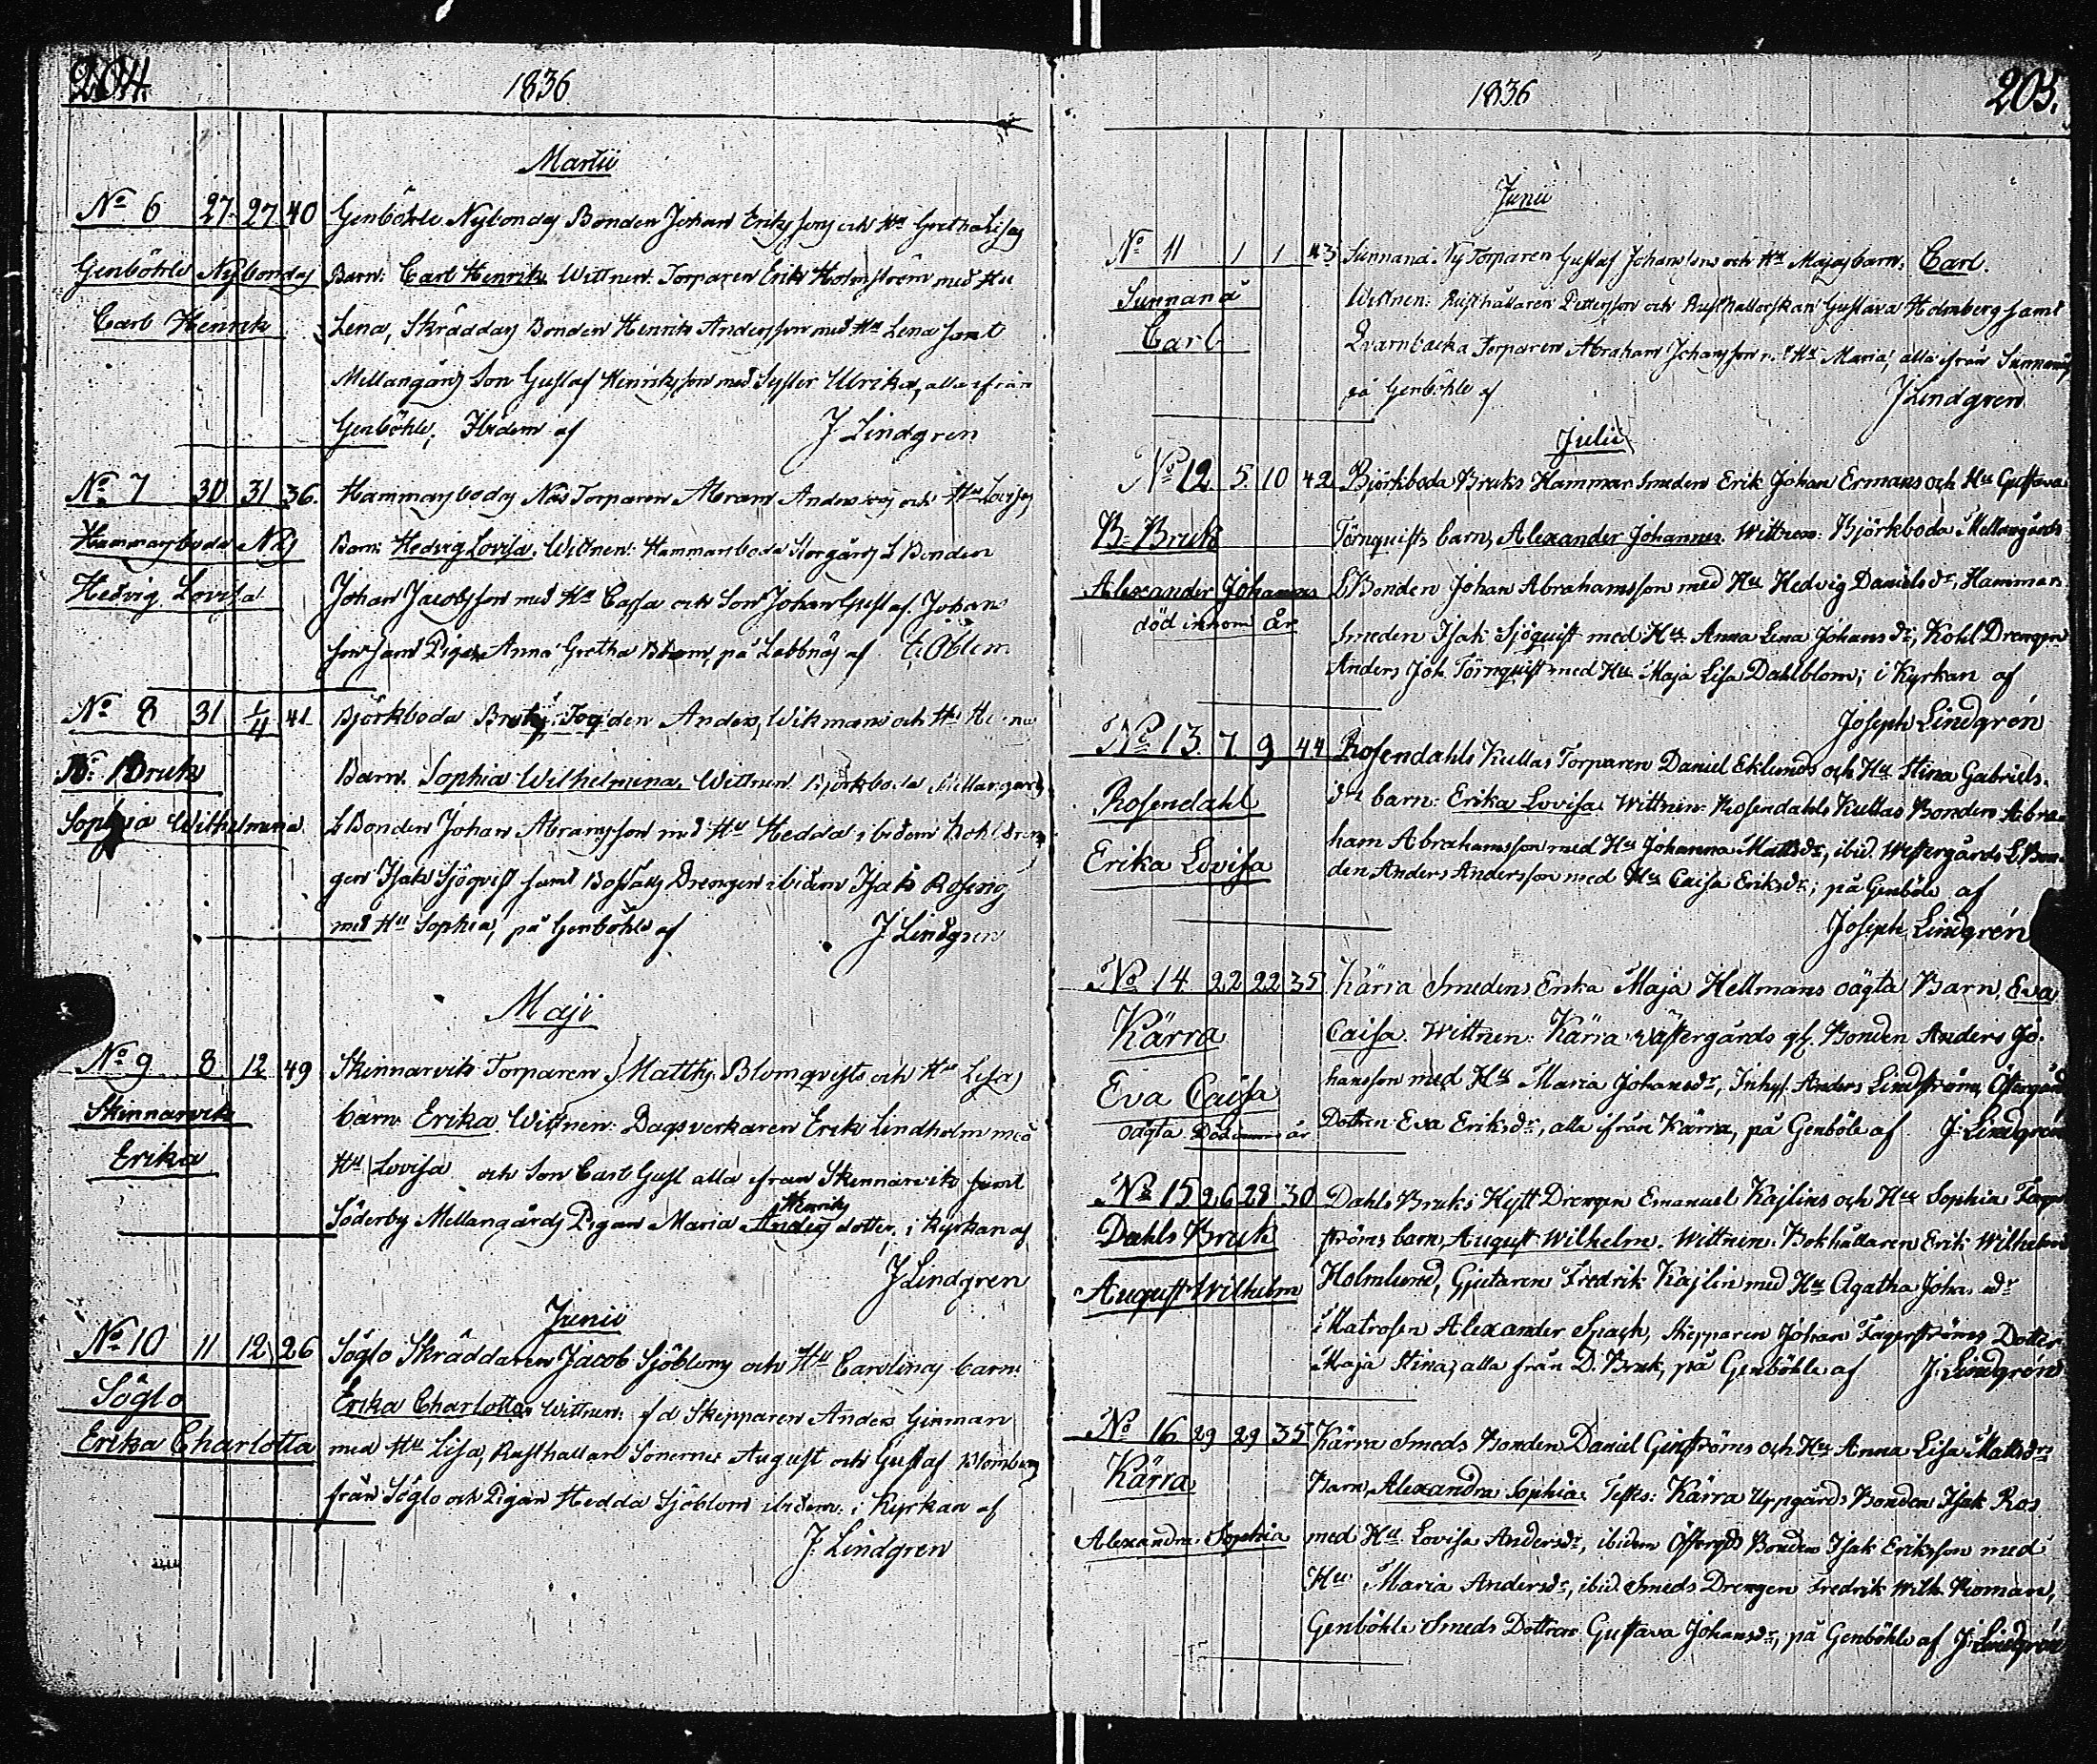 204
1836
Martii
No 6 27 27 40 Genböhle Nybondas Bonden Johan Erikssons och Hu Greta Lisas
Genböhle Nybondas Barn: Carl Henrik Wittnen: Torparen Erik Holmström med Hu
Carl Henrik Lena, Skräddas Bonden Henrik Andersson med Hu Lena samt
Mellangårds Son Gustaf Henriksson med Syster Ulrika, alla ifrån
Genböhle; Ibidem af J Lindgren
No 7 30 31 36. Hammarsboda Näs Torparen Abram Anderssons och Hus Lovisas
Hammarsboda Näs Barn: Hedvig Lovisa. Wittnen: Hammarsboda Storgårds L Bonden
Hedvig Lovisa Johan Jacobsson med Hu Cajsa och Son Johan Gustaf Johans
son samt Pigan Anna Gretha Blom, på Labbnäs af
No 8 31 1/4 41. Björkboda Bruks Anders Wikmans och Hu
B: Bruk Barn. Sophia Wilhelmina. Wittnen Björkboda Mellangårds
Sophia Wilhelmina L Bonden Johan Abramsson med Hu Hedda, ibidem Kohldren
gen Isak Sjöqvist samt Drengen ibidem Isak
med Hu Sophia, på Genböhle af J. Lindgren
Maji
No 9 8 12 49 Skinnarvik Torparen Matths Blomqvists och Hu Lisas
Skinnarvik barn Erika Wittnen: Dagsverkaren Erik Lindholm med
Erika Hu Lovisa och Son Carl Gust alla ifrån Skinnarvik samt
Henriks
Söderby Mellangårds Pigan Maria Anders dotter, i Kyrkan af
J. Lindgren
Junii
No 10 11 12 26 Söglo Skräddaren Jacob Sjöbloms och Hu Carolinas barn:
Söglo Erika Charlotta Wittnen: fd Skepparen Anders Ginman
Erika Charlotta med Hu Lisa, Rusthållare Sönerne August och Gustaf Blomberg
från Söglo och Pigan Hedda Sjöblom ibidem. i Kyrkan af
J. Lindgren
1836
205.
Junii
No 11 1 1 43 Sunnanå Ny Torparen Gustaf Johanssons och Hu Majas barn: Carl.
Sunnanå Wittnen: Rusthållaren Pettersson och Rusthållerskan Gustava Holmberg samt
Carl Qvarnbacka Torparen Abraham Johansson m. Hu Maria, alla ifrån Sunnanå
på Genböhle af J Lindgren
Julii
No 12. 5 10 42 Björkboda Bruks Hammar Smeden Erik Johan Ermans och Hu Gustava
B: Bruk Törnquists barn, Alexander Johannes. Wittnen: Björkboda Mellangårds
Alexander Johannes LBonden Johan Abrahamsson med Hu Hedvig Danielsdr, Hammar
död inom år Smeden Isak Sjöquist med Hu Anna Lena Johansdr, Kohl Drengen
Anders Joh. Törnquist med Hu Maja Lisa Dahlblom; i Kyrkan af
Joseph Lindgrén
No 13. 7. 9 44 Rosendahls Kullas Torparen Daniel Eklunds och Hu Stina Gabriels-
Rosendahl drs barn: Erika Lovisa Wittnen: Rosendahls Kullas Bonden Abra-
Erika Lovisa ham Abrahamsson med Hu Johanna Mattsdr, ibid. Westergårds LBon-
den Anders Andersson med Hu Caisa Eriksdr; på Genböle af
Joseph Lindgrén
No 14 22 22 35. Kärra Smedens Erika Maja Hellmans oägta Barn, Eva
Kärra Caisa. Wittnen: Kärra Wästergårds Bonden Anders Jo-
Eva Caisa hansson med Hu Maria Johansdr, Inhys. Anders Lindström, Östergårds
oägta Död inom år Dottren Eva Eriksdr, alla ifrån Kärra, på Genböle af J: Lindgrén
No 15 26 28 30 Dahls Bruks Hytt Drengen Emanuel Kajlins och Hu Sophia Fager
Dahls Bruk ströms barn, August Wilhelm. Wittnen: Bokhållaren Erik Wilhelm
August Wilhelm Holmlund, Gjutaren Fredrik Kajlin med Hu Agatha Johansdr
Matrosen Alexander Skepparen Johan Fagerströms Dotter
Maja Stina, alla från D. Bruk, på Genböhle af J: Lindgrén
No 16 29 29 35 Kärra Smeds Bonden Daniel Genströms och Hu Anna Lisa Mattsdrs
Kärra Barn, Alexandra Sophia. Testes: Kärra Uppgårds Bonden Isak Ros
Alexandra Sophia med Hu Lovisa Andersdr, ibidem Östergds Bonden Isak Eriksson med
Hu Maria Andersdr, ibid. Smeds Drengen Fredrik Wilh. Roman,
Genböhle Smeds Dottren Gustava Johansdr, på Genböhle af J: Lindgrén